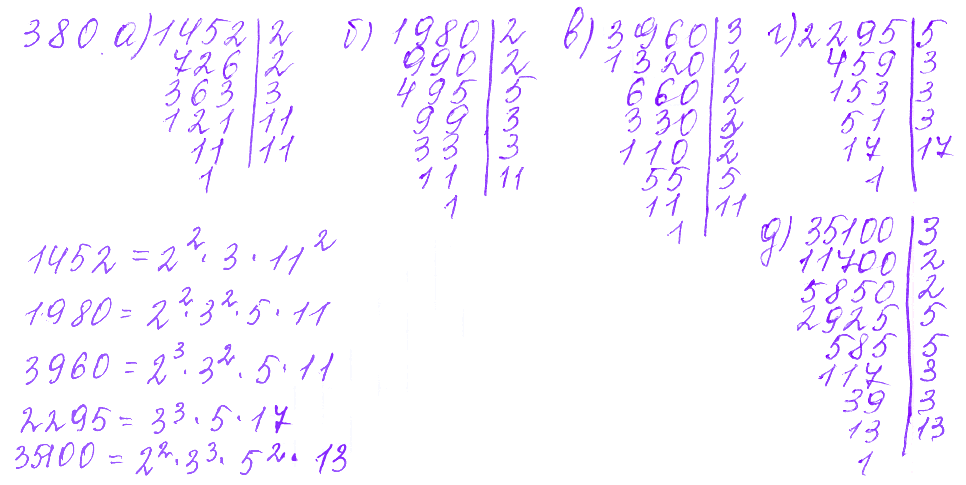 380. а) 1452 | 2
726 | 2
363 | 3
121 | 11
11 | 11
1
б) 1980 | 2
990 | 2
495 | 5
99 | 3
33 | 3
11 | 11
1
в) 3960 | 3
1320 | 2
660 | 2
330 | 3
110 | 2
55 | 5
11 | 11
1
г) 2295 | 5
459 | 3
153 | 3
51 | 3
17 | 17
1
д) 35100 | 3
11700 | 2
5850 | 2
2925 | 5
585 | 5
117 | 3
39 | 3
13 | 13
1
1452 = 2² · 3 · 11²
1980 = 2² · 3² · 5 · 11
3960 = 2³ · 3² · 5 · 11
2295 = 3³ · 5 · 17
35100 = 2² · 3³ · 5² · 13